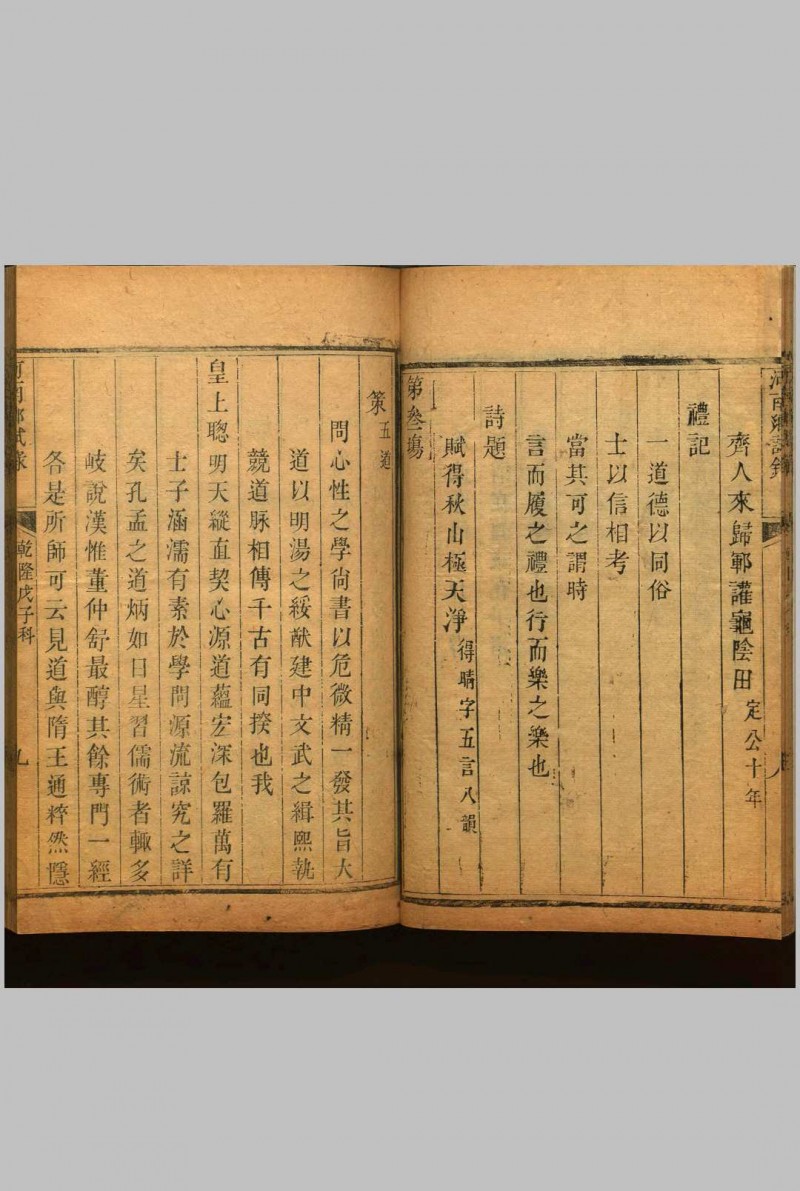 河南鄉試錄
齊人來歸鄆讙龜陰田 定公十年
禮記
一道德以同俗
士以信相考
當其可之謂時
言而履之禮也行而樂之樂也
詩題
賦得秋山極天淨 得晴字五言八韻
第叁塲
策五道
問心性之學尙書以危微精一發其旨大
道以明湯之綏猷建中文武之緝熙執
競道脉相傳千古有同揆也我
皇上聰明天縱直契心源道蘊宏深包羅萬有
士子涵濡有素於學問源流諒究之詳
矣孔孟之道炳如日星習儒術者輒多
岐說漢惟董仲舒最醇其餘專門一經
各是所師可云見道與隋王通粹然隱
河南鄉試錄
乾隆戊子科
九